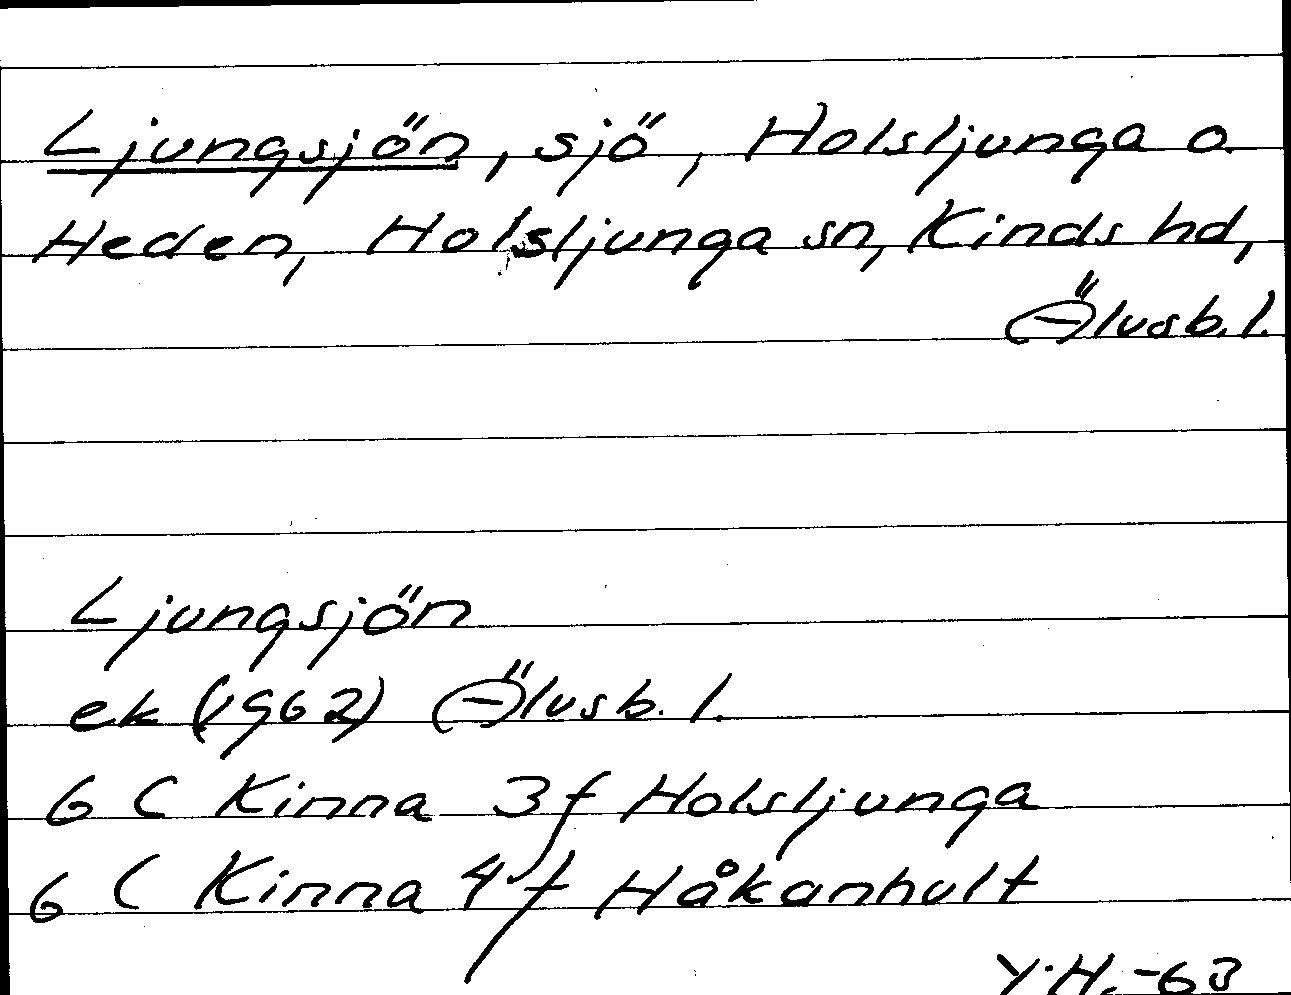 Ljungsjön, sjö, Holsljunga o.
Heden, Holsljunga sn, Kinds hd,
Älvsb. l.
Ljungsjön
ek (1962) Älvsb. l.
6 C Kinna 3 f Holsljunga
6 C Kinna 4 f Håkanhult
Y.H. -63